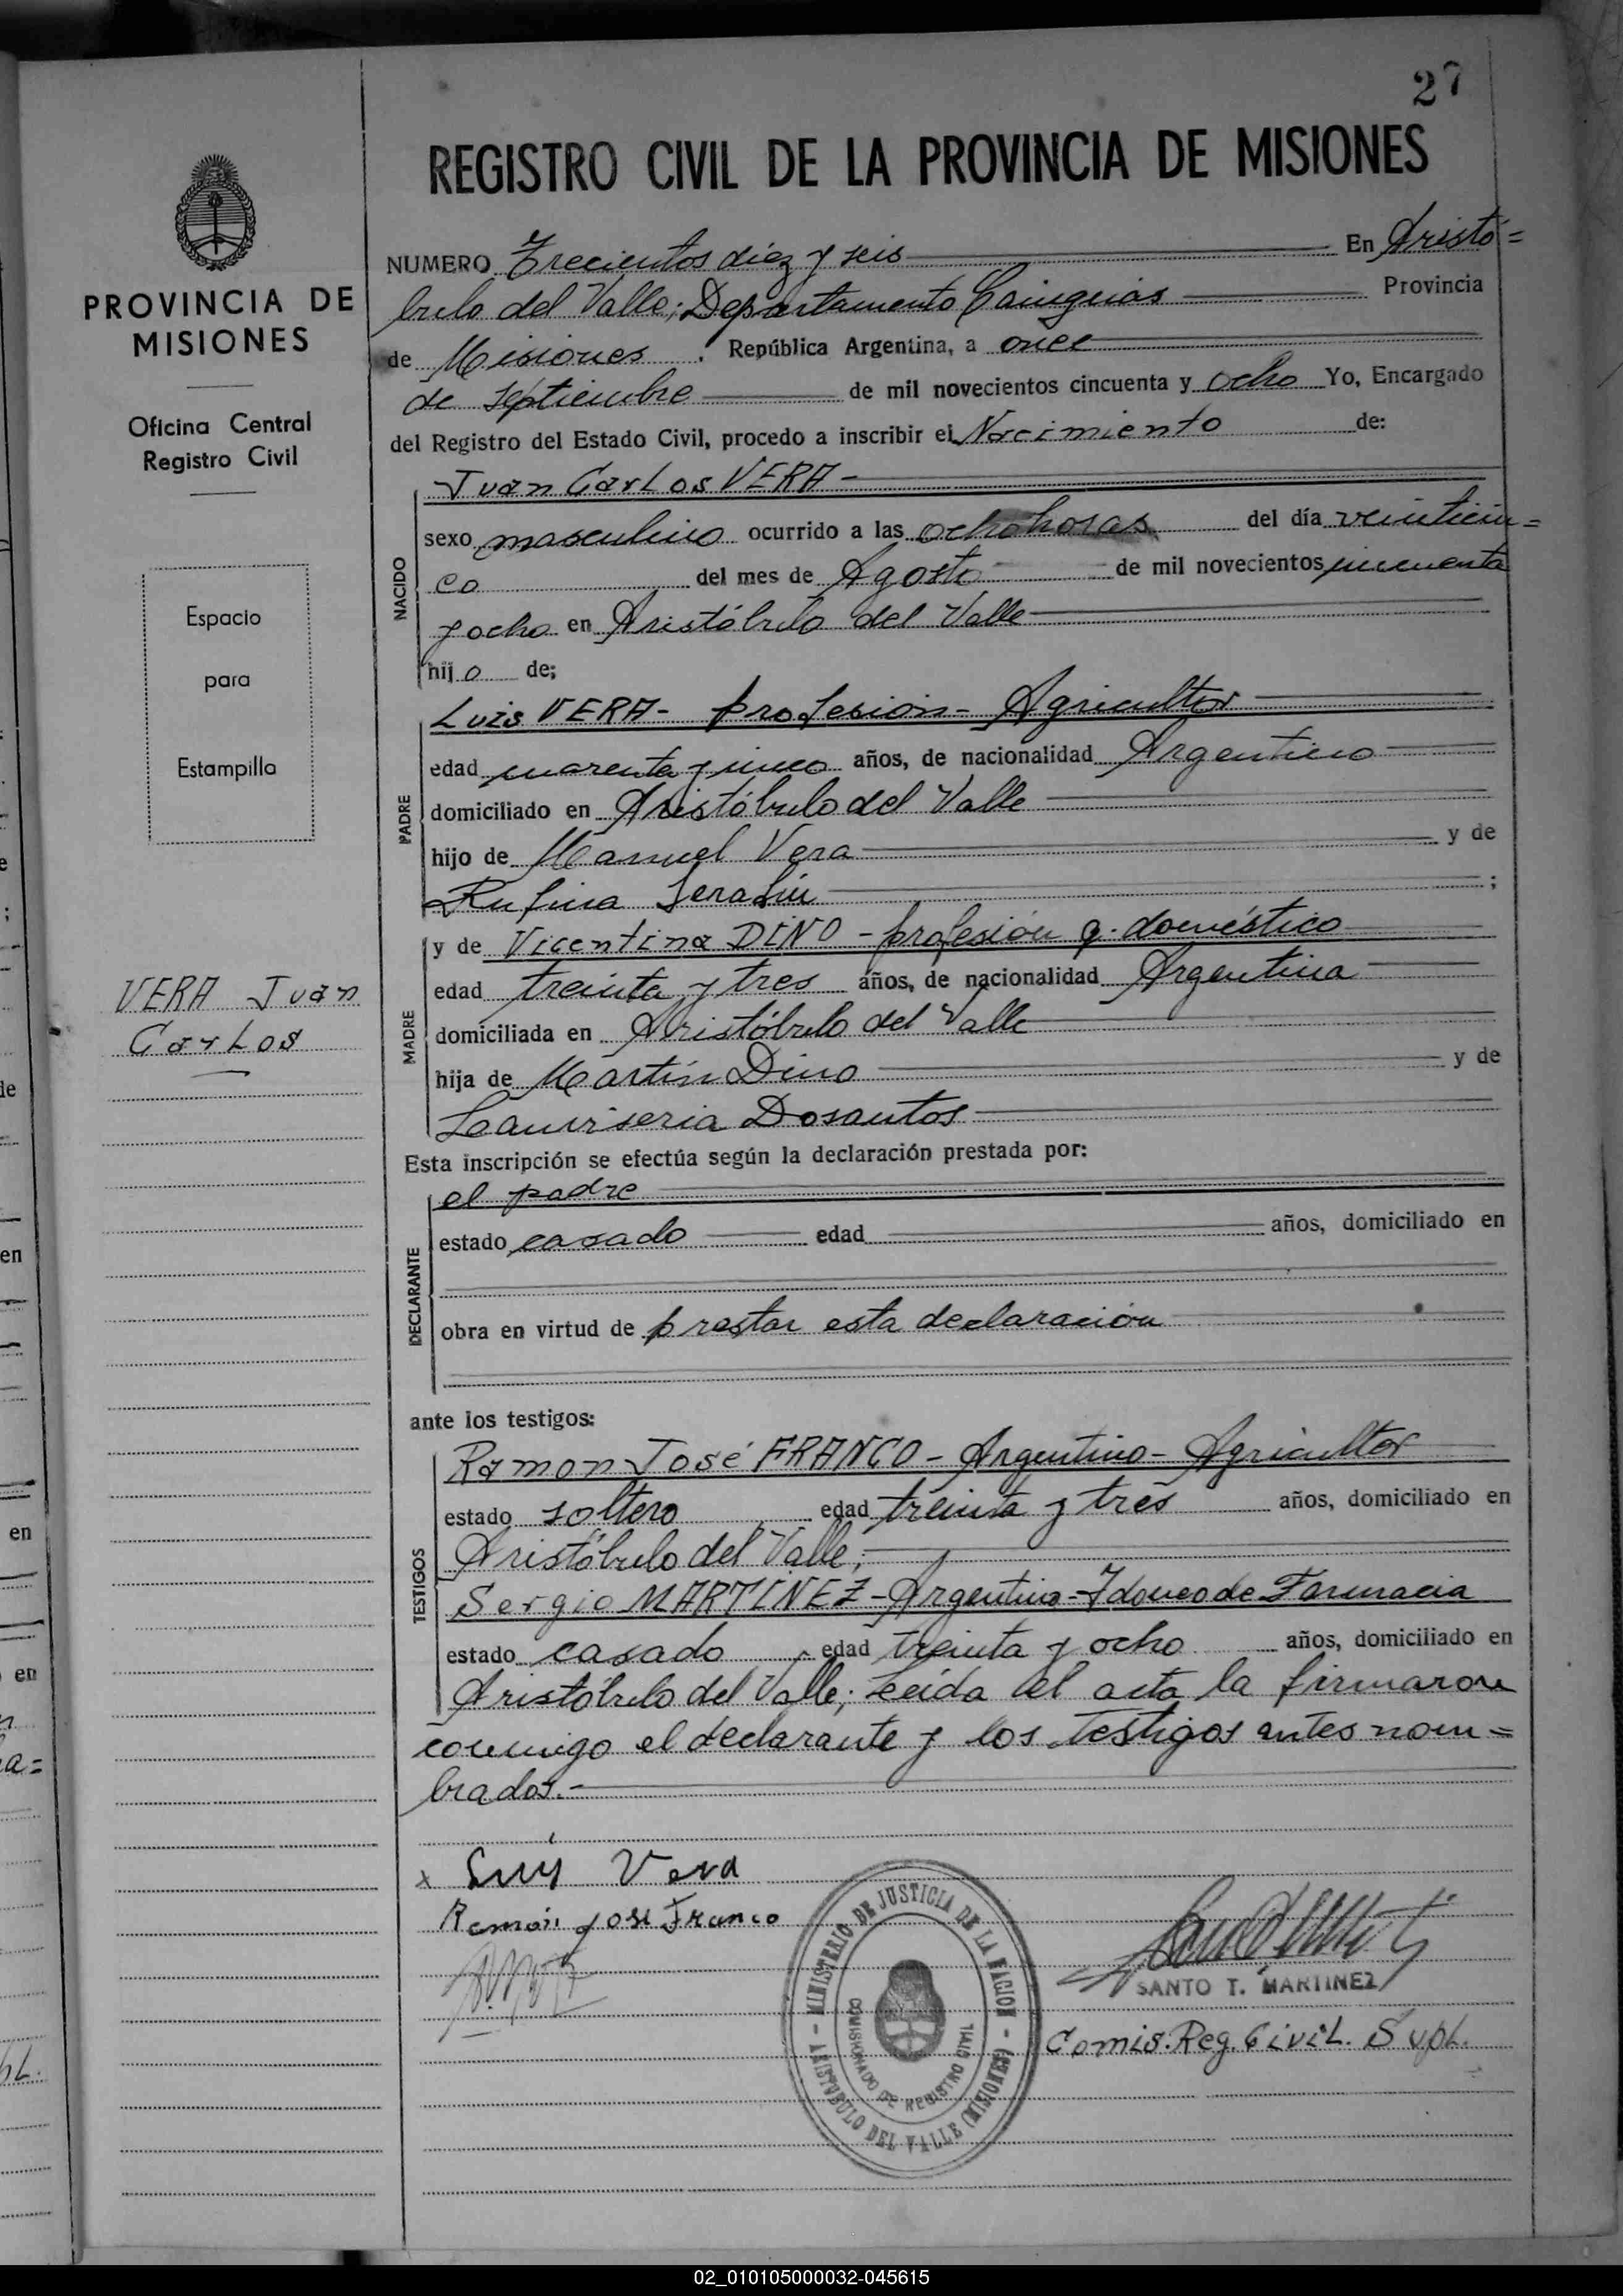 27
REGISTRO CIVIL DE LA PROVINCIA DE MISIONES
PROVINCIA DE
MISIONES
Oficina Central
Registro Civil
Espacio
para
Estampilla
VERA Juan
Carlos
NUMERO Trecientos diez y seis En Aristó=
bulo del Valle; Departamento Cainguás Provincia
de Misiones . República Argentina, a once
de septiembre de mil novecientos cincuenta y ocho Yo, Encargado
del Registro del Estado Civil, procedo a inscribir el Nacimiento de:
NACIDO
Juan Carlos VERA-
sexo masculino ocurrido a las ocho horas del día veinticin=
co del mes de Agosto de mil novecientos cincuenta
y ocho en Aristóbulo del Valle
hijo de;
PADRE
Luis VERA- profesión- Agricultor
edad cuarenta y cinco años, de nacionalidad Argentino
domiciliado en Aristóbulo del Valle
hijo de Manuel Vera y de
Rufina Serafin ;
MADRE
y de Vicentina DINO - profesión q. doméstico
edad treinta y tres años, de nacionalidad Argentina
domiciliada en Aristóbulo del Valle
hija de Martín Dino y de
Dosantos
Esta inscripción se efectúa según la declaración prestada por:
DECLARANTE
el padre
estado casado edad años, domiciliado en
obra en virtud de prestar esta declaración
ante los testigos:
TESTIGOS
Ramon José FRANCO- Argentino- Agricultor
estado soltero edad treinta y tres años, domiciliado en
Aristóbulo del Valle;
Sergio MARTINEZ-Argentino-Idoneo de Farmacia
estado casado edad treinta y ocho años, domiciliado en
Aristóbulo del Valle; Leida el acta la firmaron
conmigo el declarante y los testigos antes nom=
brados.-
x Luis Vera
Ramón José Franco
MINISTERIO DE JUSTICIA DE LA NACION - ARISTOBULO DEL VALLE (MISIONES)
COMISIONADO DE REGISTRO CIVIL
SANTO T. MARTINEZ
Comis. Reg. Civil. Supl.
02_010105000032-045615